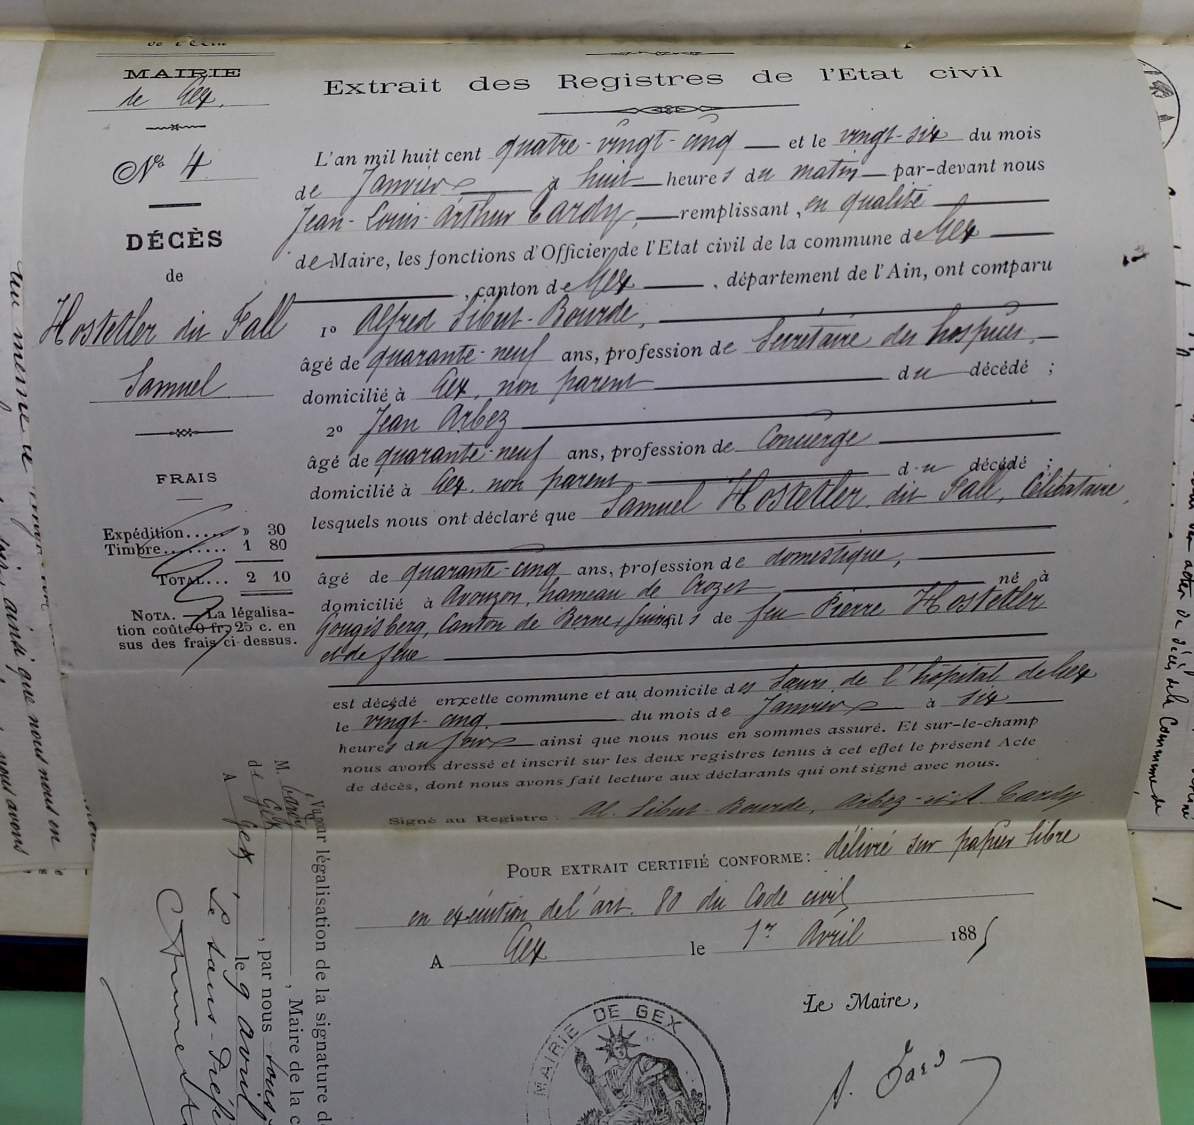 MAIRIE
de Gex,
No 4
DÉCÈS
de
Hostetler dit Fall
Samuel
FRAIS
Expédition..... » 30
Timbre........ 1 80
TOTAL... 2 10
NOTA. — La légalisa-
tion coûte 0 fr. 25 c. en
sus des frais ci-dessus.
Extrait des Registres de l'Etat civil
L'an mil huit cent quatre-vingt-cinq et le vingt-six du mois
de Janvier à huit heures du matin par-devant nous
Jean-Louis-Arthur Cardy, remplissant, en qualité
de Maire, les fonctions d'Officier de l'Etat civil de la commune de Gex
, canton de Gex, département de l'Ain, ont comparu
1º Alfred Sibut-Bourde,
âgé de quarante-neuf ans, profession de Secrétaire des hospices,
domicilié à Gex, non parent du décédé ;
2º Jean Arbez
âgé de quarante-neuf ans, profession de Concierge
domicilié à Gex, non parent du décédé ;
lesquels nous ont déclaré que Samuel Hostetler dit Fall, Célibataire,
âgé de quarante-cinq ans, profession de domestique,
domicilié à Avouzon, hameau de Crozet né à
Gougisberg, Canton de Berne, fils de feu Pierre Hostetler
et de feue
est décédé en cette commune et au domicile des Sœurs de l'hôpital de Gex
le vingt-cinq du mois de Janvier à six
heures du soir ainsi que nous nous en sommes assuré. Et sur-le-champ
nous avons dressé et inscrit sur les deux registres tenus à cet effet le présent Acte
de décès, dont nous avons fait lecture aux déclarants qui ont signé avec nous.
Signé au Registre : Al. Sibut-Bourde, Arbez et A. Cardy
POUR EXTRAIT CERTIFIÉ CONFORME : délivré sur papier libre
en exécution de l'art. 80 du Code civil
A Gex le 1er Avril 1885
Le Maire,
MAIRIE DE GEX
Vu pour légalisation de la signature d
M. Cardy, Maire de la c
de Gex, par nous sous
A Gex, le 9 avril
Le Sous-Préfe